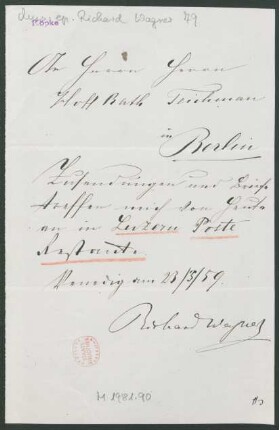 Richard Wagner 49
An Herrn Herrn
Hoff Rath Teichman
in
Berlin
Zusendungen und Briefe
treffen mich von heute
an in Luzern Poste
Restante.
Venedig am 23/3/59.
Richard Wagner
M 1981.90